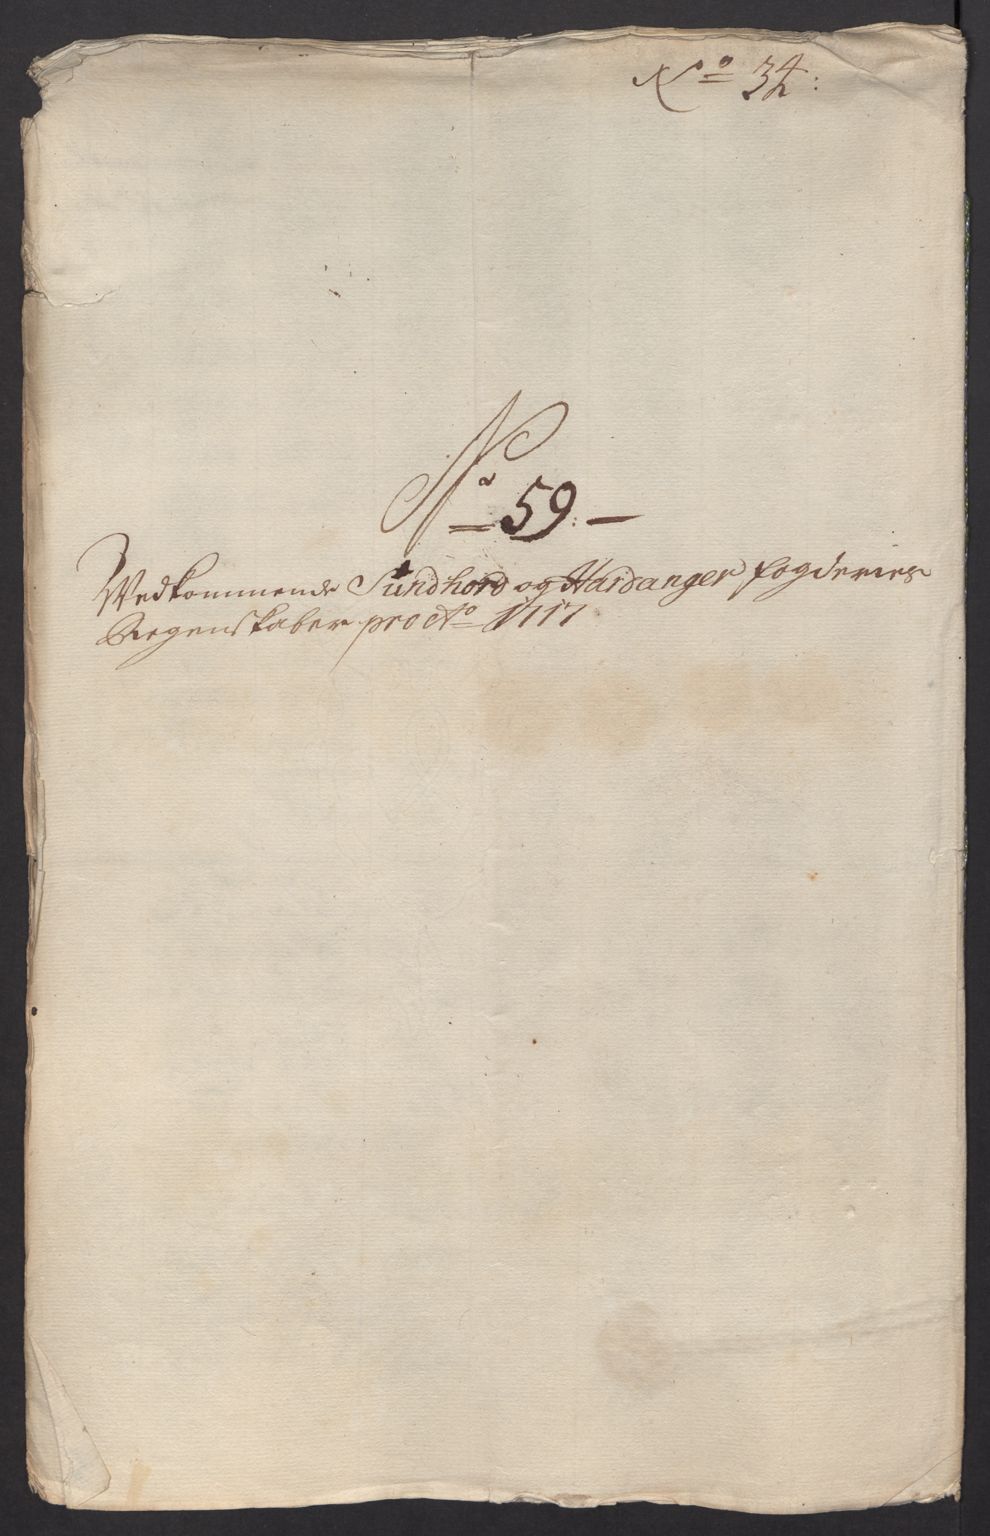 No 34:
No 59.
Vedkommende Sundhord og Hardanger fogderies
Regenskaber pro Ao 1717